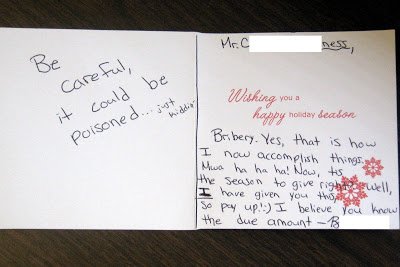 Be
careful,
it could be
poisoned...just
kiddin'
Mr. C ness,
Wishing you a
happy holiday season
Bribery. Yes, that is how
I now accomplish things.
Mwa ha ha ha! Now, tis
the season to give right? well,
I have given you this,
So pay up! :) I believe you know
the due amount - B